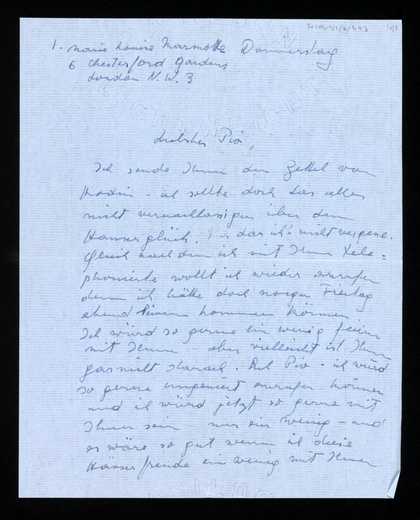 1. Marie Louise Marmotte Donnerstag
6 Chesterford Gardens
London N.W. 3
Liebster Pio,
Ich sende Ihnen den Zettel von
- ich sollte doch das alles
nicht vernachlässigen über dem
Hausesglück. das ich's nicht vergesse.
Gleich nachdem ich mit Ihnen tele=
phonierte wollt ich wieder anrufen
denn ich hätte doch morgen Freitag
abend kommen können.
Ich würd so gerne ein wenig feiern
mit Ihnen - aber vielleicht ist Ihnen
garnicht danach. Ach Pio - ich würd
so gerne ungeniert anrufen können
und ich würd jetzt so gerne mit
Ihnen sein - nur ein wenig - und
es wäre so gut wenn ich diese
Hausesfreude ein wenig mit Ihnen